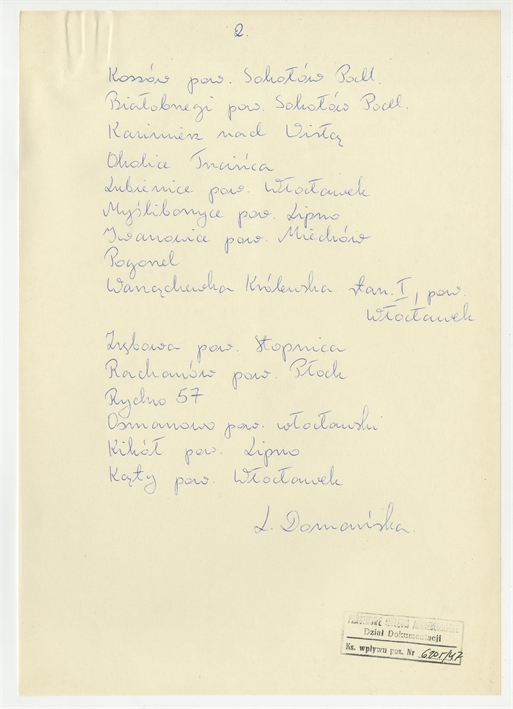 2.
Kossów pow. Sokołów Podl.
Białobrzegi pow. Sokołów Podl.
Kazimierz nad Wisłą
Okolice Tuańca
Lubienice pow. Włocławek
Myślibonyce pow. Lipno
Iwanowice pow. Miechów
Pogonel
Wanzachewka Królewska stan. I, pow.
Włocławek
Zrębowa pow. Stopnica
Rachanów pow. Płock
Rydno 57
Osmanowo pow. włocławski
Kikół pow. Lipno
Kąty pow. Włocławek
L. Domańska.
PAŃSTWOWE MUZEUM ARCHEOLOGICZNE
Dział Dokumentacji
Ks. wpływu poz. Nr